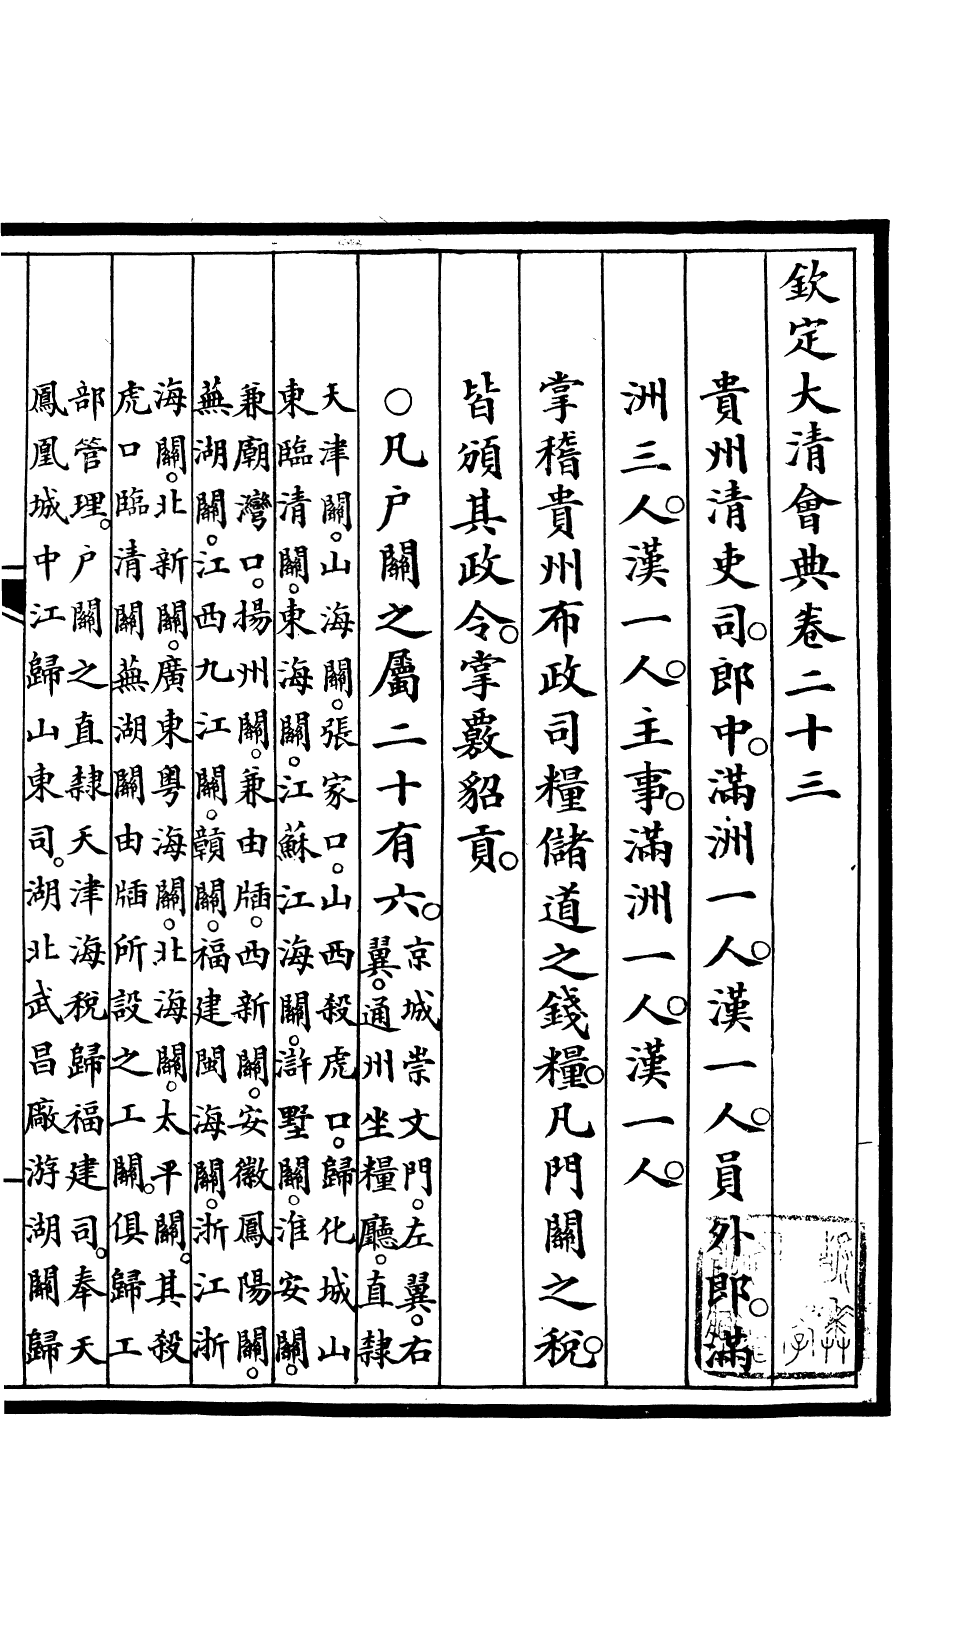 欽定大清會典卷二十三
貴州清吏司。郎中。滿洲一人。漢一人。員外郎。滿
洲三人。漢一人。主事。滿洲一人。漢一人。
掌稽貴州布政司糧儲道之錢糧。凡門關之稅。
皆頒其政令。掌覈貂貢。
○凡户關之屬二十有六。京城崇文門。左翼。右
翼。通州坐糧廳。直隸
天津關。山海關。張家口。山西殺虎口。歸化城山
東臨清關。東海關。江蘇江海關。滸墅關。淮安關。
兼廟灣口。揚州關。兼由牐。西新關。安徽鳳陽關。
蕪湖關。江西九江關。贛關。福建閩海關。浙江浙
海關。北新關。廣東粤海關。北海關。太平關。其殺
虎口臨清關蕪湖關由牐所設之工關。俱歸工
部管理。户關之直隸天津海稅歸福建司。奉天
鳳凰城中江歸山東司。湖北武昌廠游湖關歸